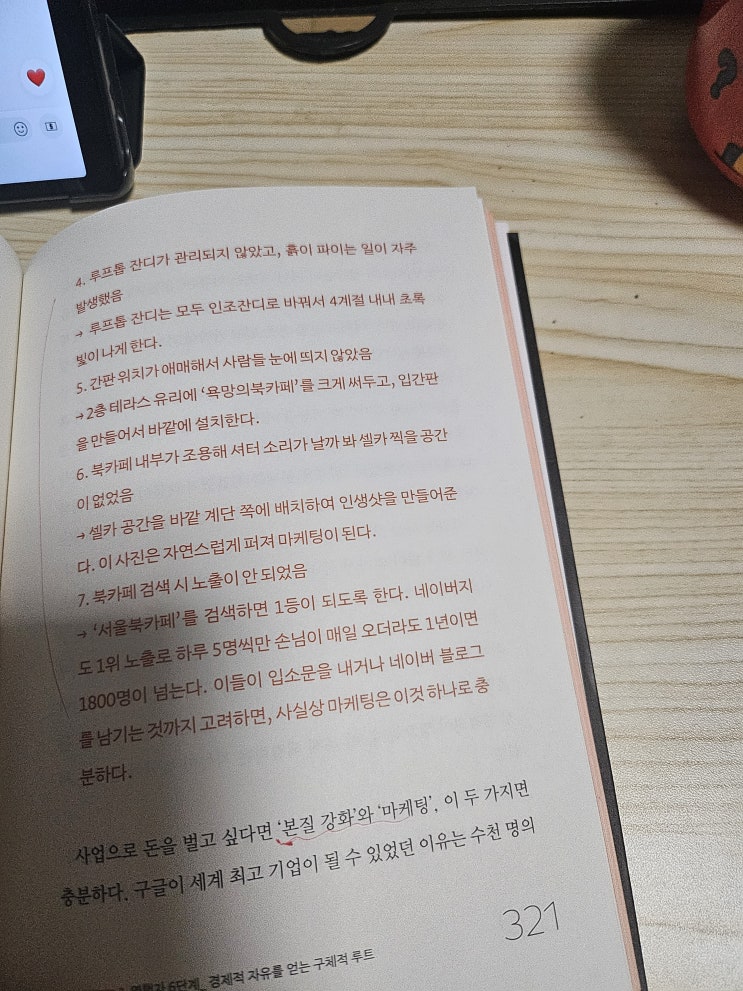 4. 루프톱 잔디가 관리되지 않았고, 흙이 파이는 일이 자주
발생했음
→ 루프톱 잔디는 모두 인조잔디로 바꿔서 4계절 내내 초록
빛이 나게 한다.
5. 간판 위치가 애매해서 사람들 눈에 띄지 않았음
→ 2층 테라스 유리에 ‘욕망의북카페’를 크게 써두고, 입간판
을 만들어서 바깥에 설치한다.
6. 북카페 내부가 조용해 셔터 소리가 날까 봐 셀카 찍을 공간
이 없었음
→ 셀카 공간을 바깥 계단 쪽에 배치하여 인생샷을 만들어준
다. 이 사진은 자연스럽게 퍼져 마케팅이 된다.
7. 북카페 검색 시 노출이 안 되었음
→ ‘서울북카페’를 검색하면 1등이 되도록 한다. 네이버지
도 1위 노출로 하루 5명씩만 손님이 매일 오더라도 1년이면
1800명이 넘는다. 이들이 입소문을 내거나 네이버 블로그
를 남기는 것까지 고려하면, 사실상 마케팅은 이것 하나로 충
분하다.
사업으로 돈을 벌고 싶다면 ‘본질 강화’와 ‘마케팅’. 이 두 가지면
충분하다. 구글이 세계 최고 기업이 될 수 있었던 이유는 수천 명의
321
6단계_ 경제적 자유를 얻는 구체적 루트